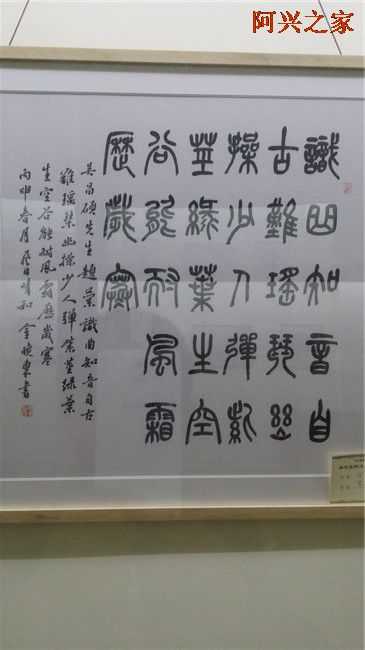 阿兴之家
識曲知音自
古難瑤琴幽
操少人彈紫
莖綠葉生空
谷能耐風霜
歷歲寒
吴昌碩先生題蘭識曲知音自古
難瑤琴幽操少人彈紫莖綠葉
生空谷能耐風霜歷歲寒
丙申春月風日和金曉東書